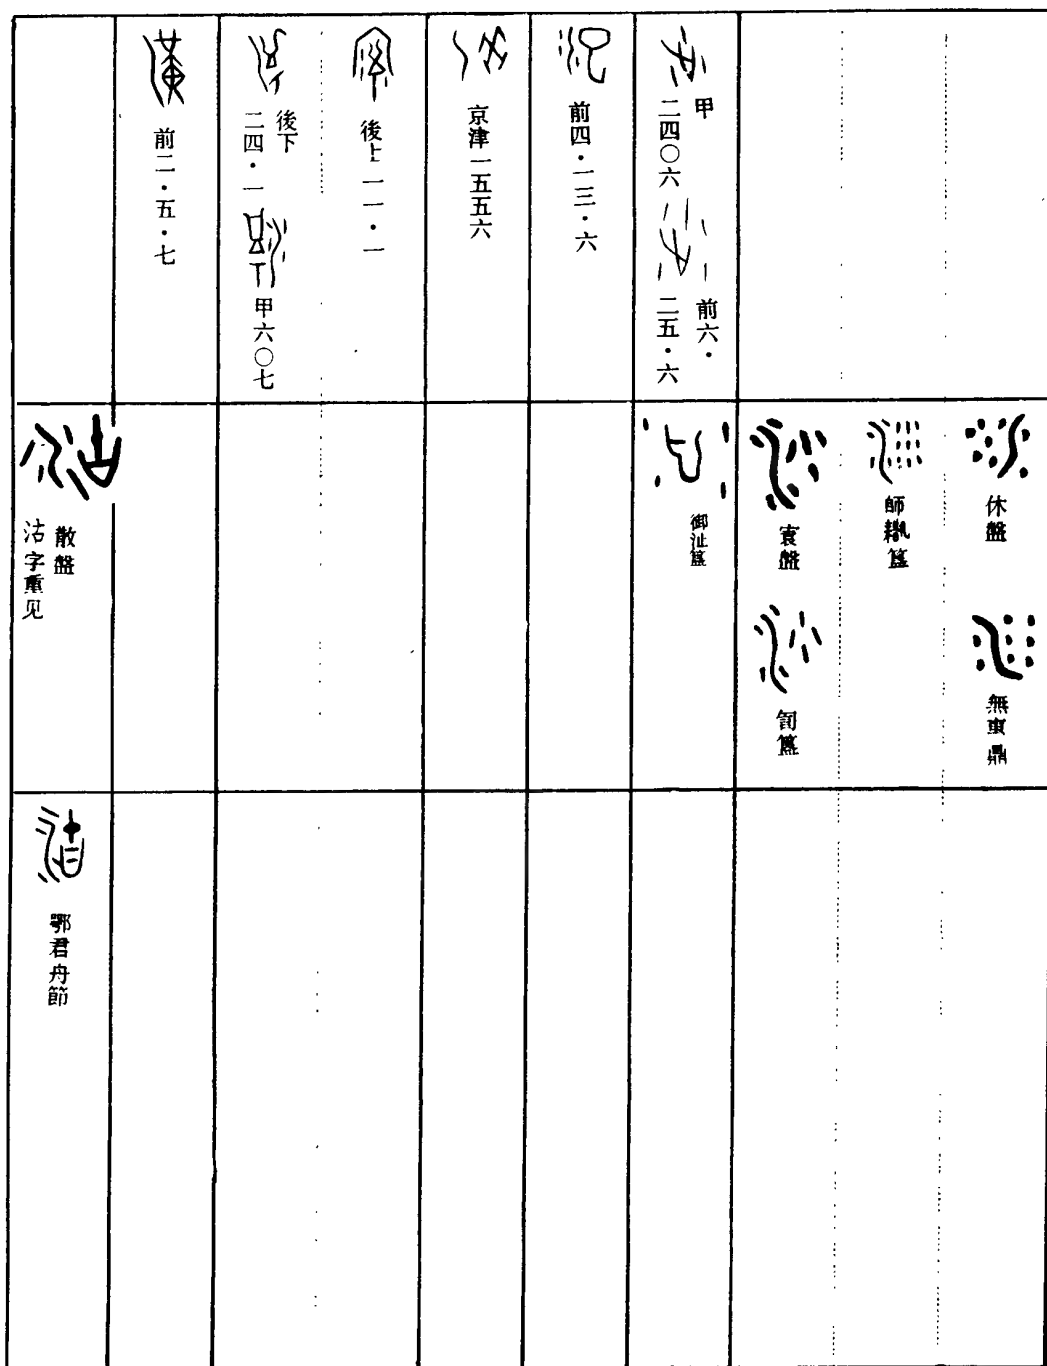 甲
二四〇六
前六・
二五・六
前四・一三・六
京津一五五六
後上一一・一
後下
二四・一
甲六〇七
前二・五・七
休盤
無叀鼎
師簋
寰盤
訇簋
御沚簋
散盤
沽字重见
鄂君舟節